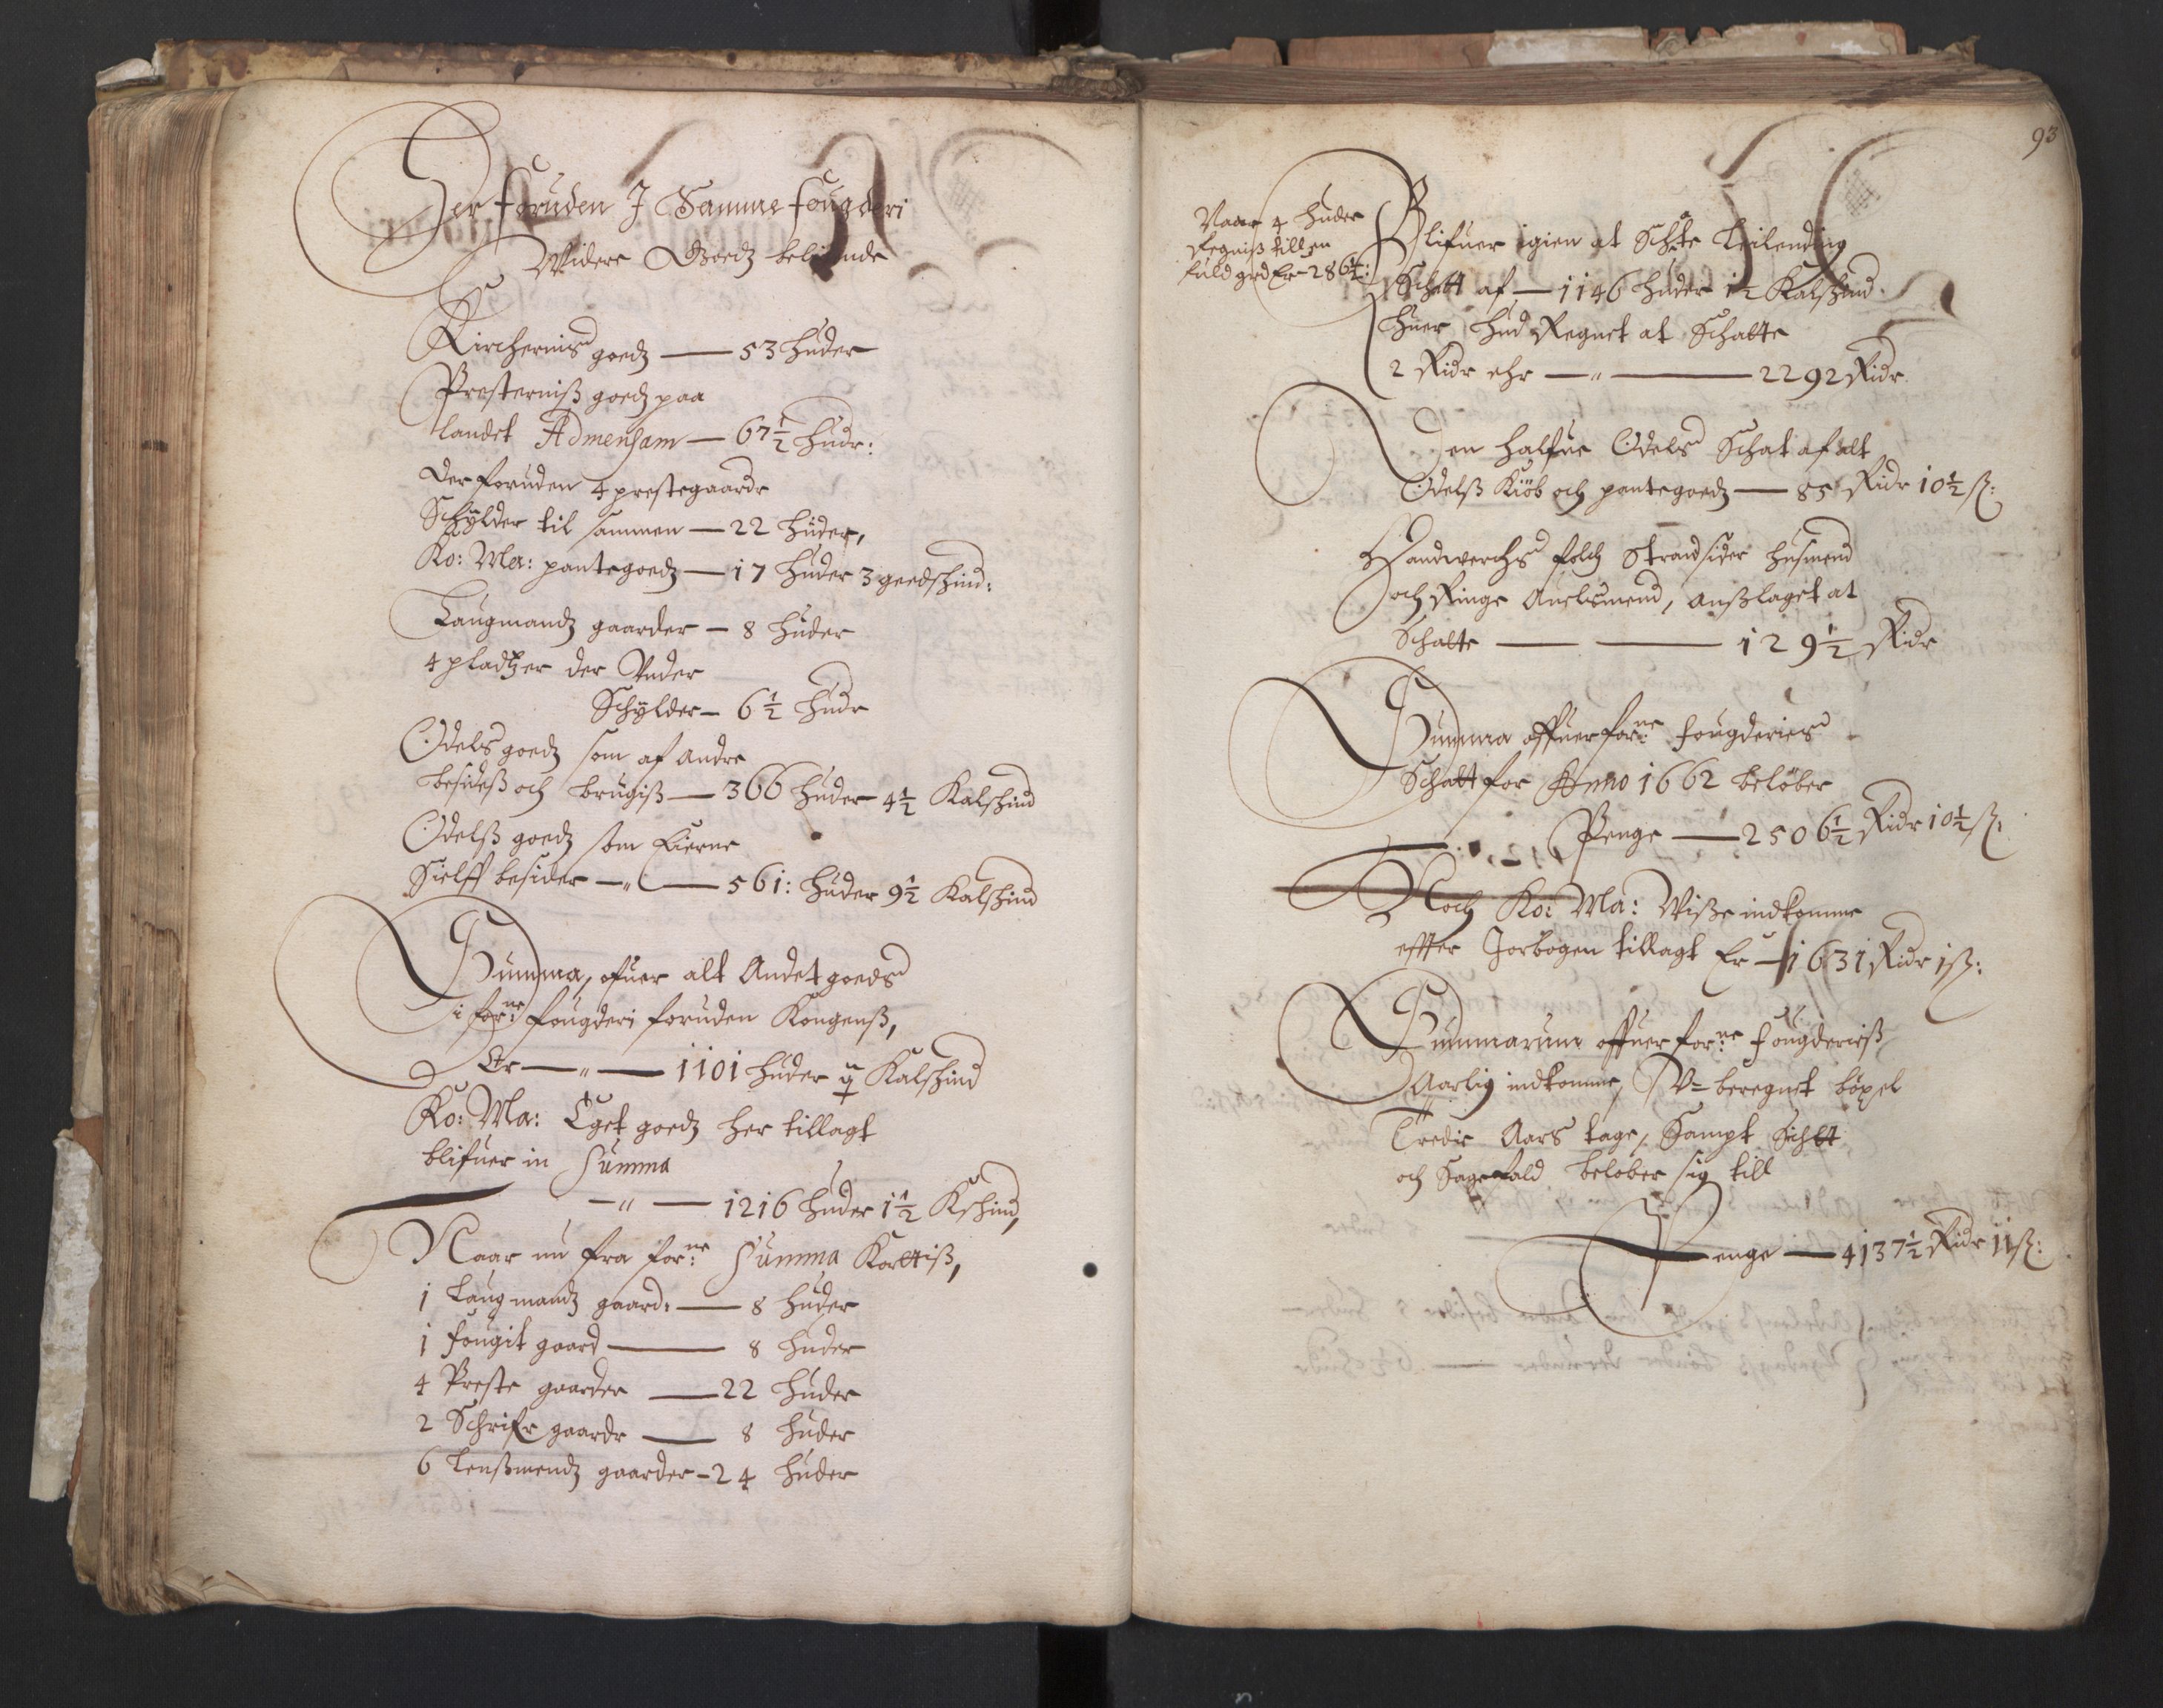 Der foruden J Samme fougderi
Widere Goedz belig nde
Kirchernis goedz — 53 huder
Presterniß goedz paa
landet Admensam — 67½ hudr:
Der foruden 4 prestegaardr
Schÿlder til sammen — 22 huder,
Ko: Ma: pantegoedz — 17 huder 3 geedschind:
Laugmandz gaarder — 8 huder
4 pladtzer der Vnder
Schÿlder — 6½ hudr
Odels goedz som af andre
besidess och brugiß — 366 huder 4½ Kalschind
Odelß goedz som Eierne
Sielff besider —„— 561: huder 9½ Kalschind
Summa, ofuer alt Andet goeds
i forne: fougderi foruden Kongenß,
Er —„— 1101 huder Kalschind
Ko: Ma: Eget goedz her tillagt
blifuer in Summa
—„— 1216 huder 1½ Kschind,
Naar nu fra forne: Summa Kortiß,
1 Laugmandz gaard: — 8 huder
1 fougit gaard — 8 huder
4 Preste gaarder — 22 huder
2 Schrifr gaardr — 8 huder
6 Lenßmendz gaarder - 24 huder
93
Naar 4 huder
Regniß till en
fuld grd Er - 286½:
Blifuer igien at Schte Leilending
Schatt af — 1146 huder 1½ Kalschind.
huer hud Regnet at Schatte
2 Ridr ehr —„— 2292 Ridr.
Den halfue Odels Schat af alt
Odelß Kiöb och pantegoedz — 85 Ridr 10½ ß:
Handwerchs folch Strandsider husmend
och Ringe Auelsmend, anßlaget at
Schatte — — 129½ Ridr
Summa offuer forne: fougderies
Schatt for Anno 1662 belöber
Penge — 2506½ Ridr 10½ ß:
Noch Ko: Ma: Wiße indkomme
effter Jorbogen tillagt Er — 1631 Ridr 1 ß:
Summarum offuer forne: fougderieß
Aarlig indkomme, V= beregnet böxel
Tredie Aars tage, Sampt Schtt
och Sagefald belober sig till
Penge — 4137½ Ridr 11 ß: